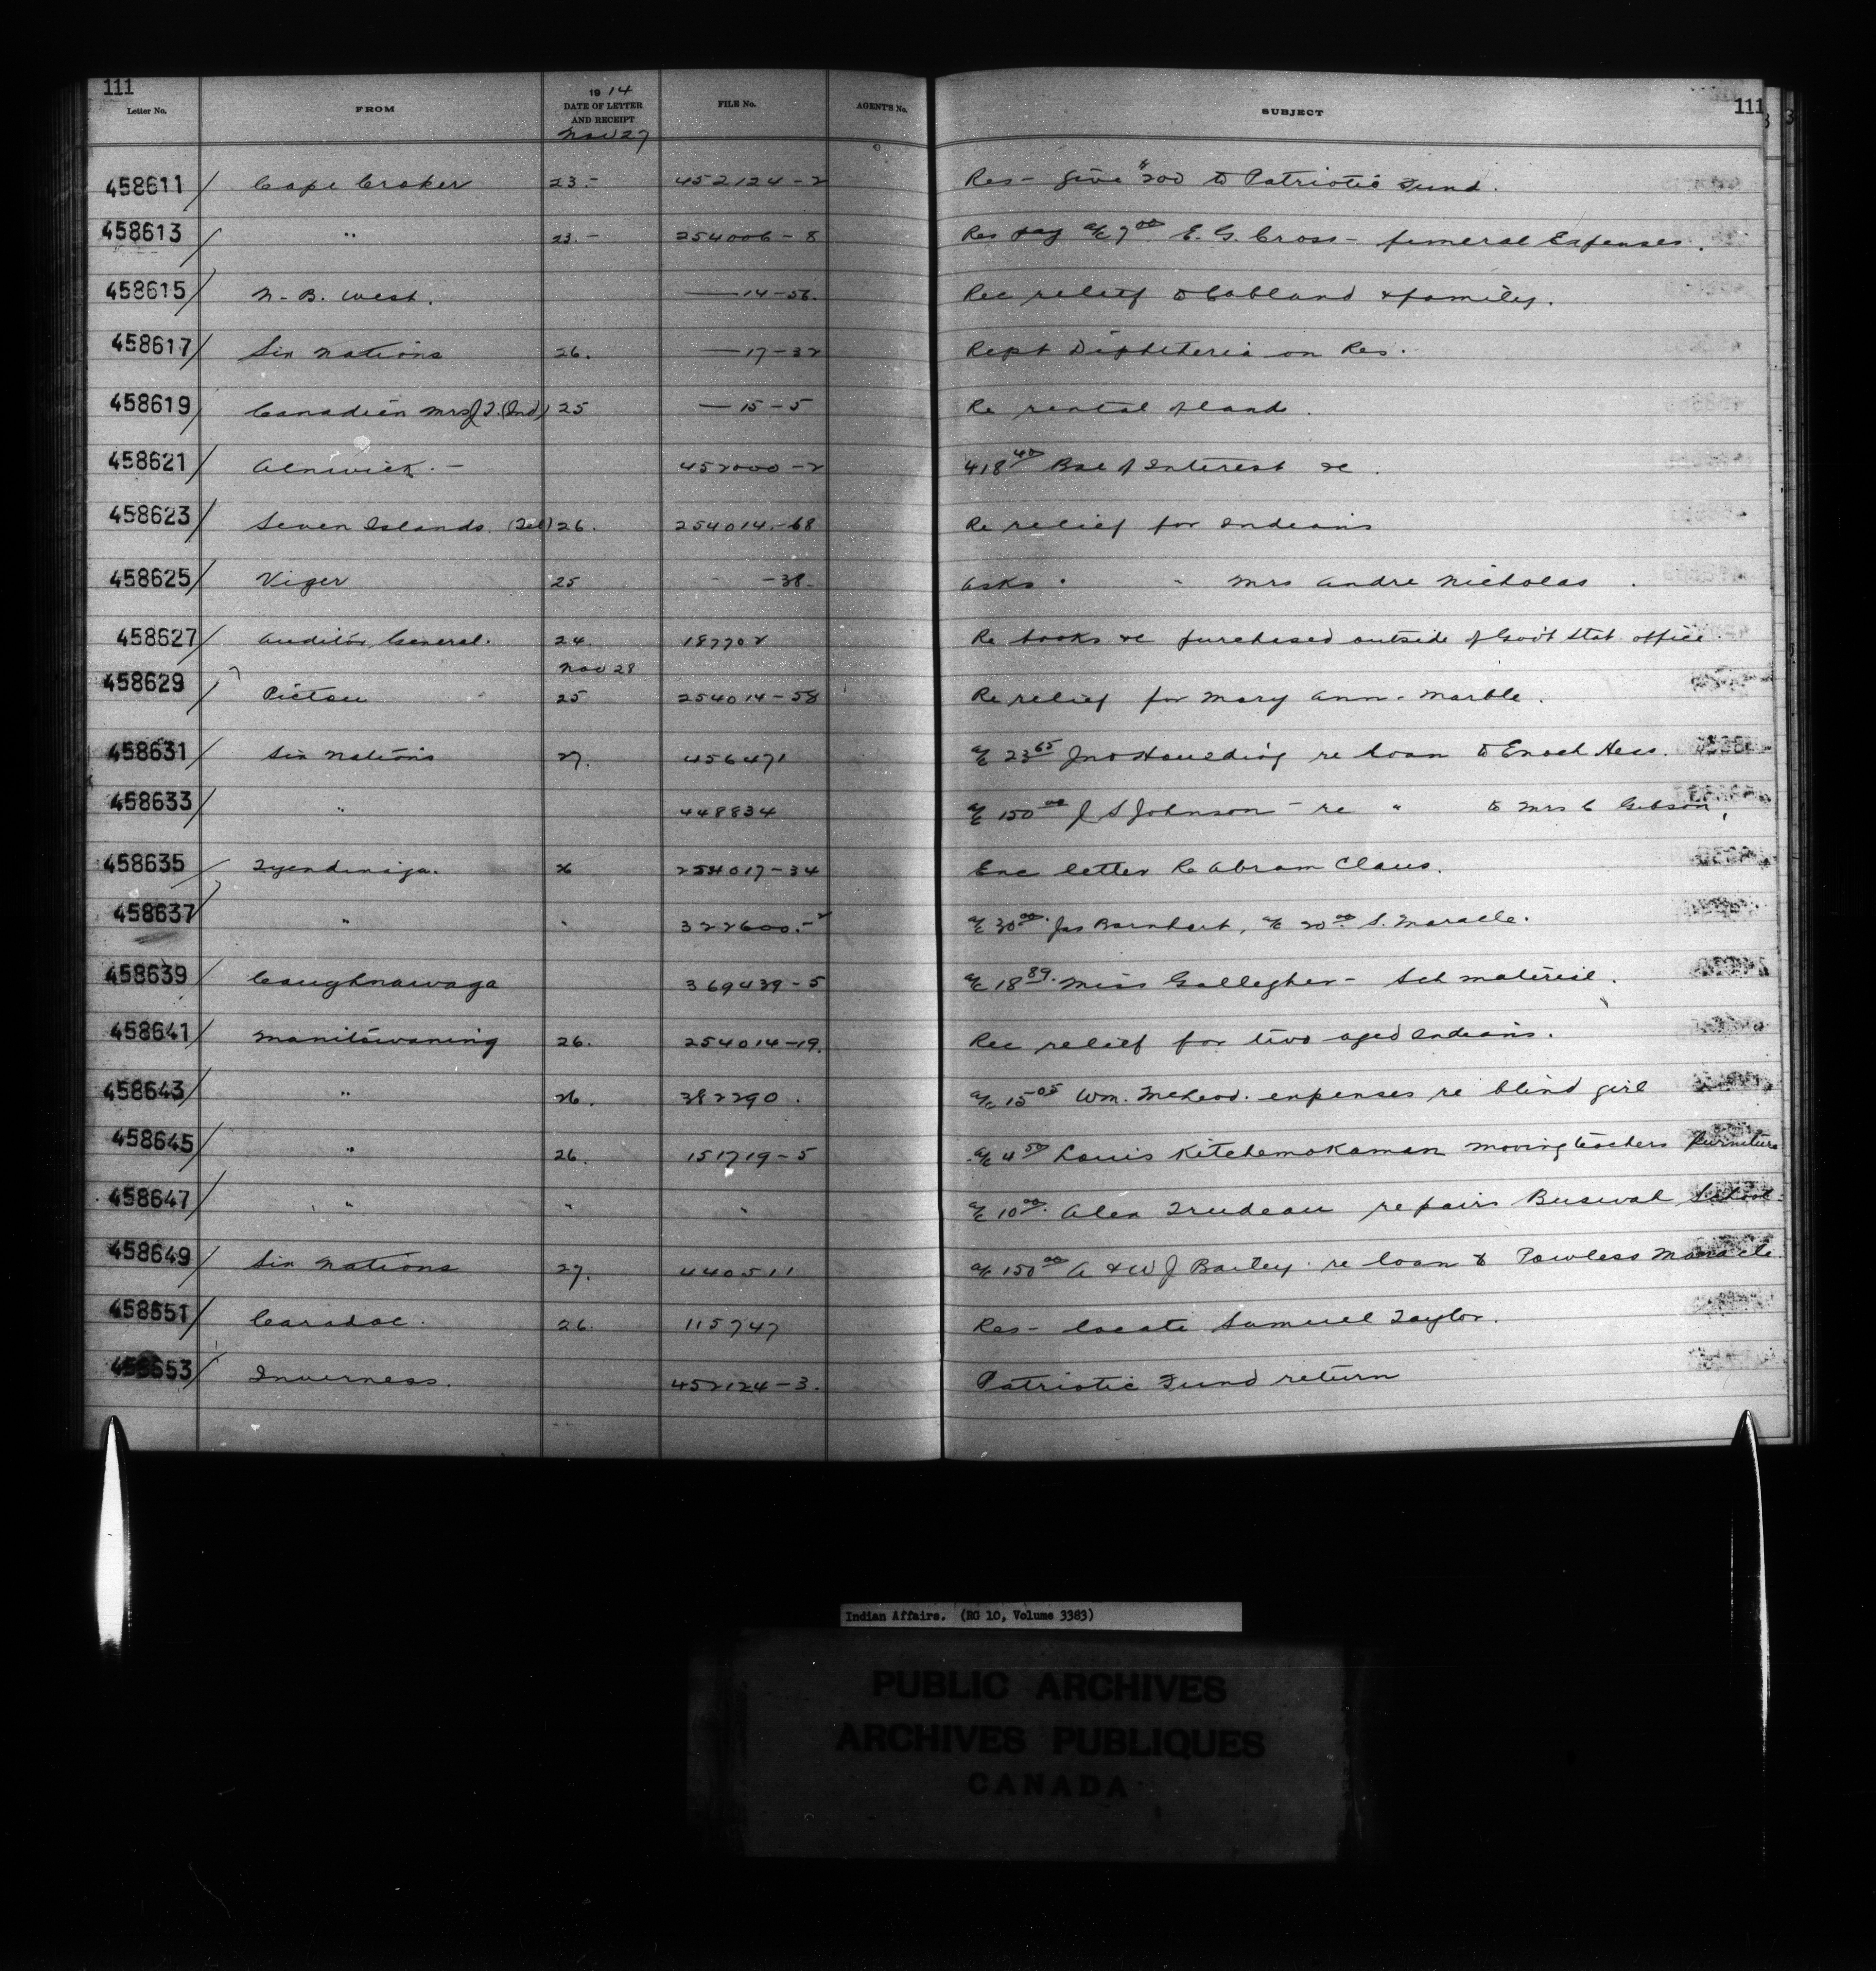 111 111
Letter No. FROM 1914 DATE OF LETTER AND RECEIPT FILE No. AGENT'S No. SUBJECT
Nov 27
458611 / Cape Croker 23.- 452124-2 Res- give $200 to Patriotic Fund.
458613 / " 23.- 254006-8 Res pay a/c 7.00 E. G. Cross - funeral Expenses.
458615 / N-B. West. — 14-56. Rec relief to & family.
458617 / Six Nations 26. — 17-32 Rept Diphtheria on Res.
458619 / Canadien Mrs J T. (Ind) 25 — 15-5 Re rental of land.
458621 / Alnwick.- 452000-2 418.40 Bal of Interest &c.
458623 / Seven Islands. (Tel) 26. 254014-68 Re relief for Indians
458625 / Viger 25 - -38- Asks " " Mrs Andre Nicholas.
458627 / Auditor General. 24. 187702 Re books &c purchased outside of Gov't Stat. office.
Nov 28
458629 / Pictou 25 254014-58 Re relief for Mary Ann-Marble.
458631 / Six Nations 27. 456471 a/c 23.65 Jno re loan to Enoch Hess.
458633 / " 448834 a/c 150.00 J S Johnson - re " to Mrs C Gibson,
458635 / Tyendinaga. 26 254017-34 Enc letter Re Abram Claus.
458637 / " " 322600.-2 a/c 30.00. Jas Barnhart, a/c 20.00 S. Maracle.
458639 / Caughnawaga 369439-5 a/c 18.89. Miss Gallegher - Sch material.
458641 / Manitowaning 26. 254014-19. Rec relief for two aged Indians.
458643 / " 26. 382290. a/c 15.05 Wm. McLeod. expenses re blind girl
458645 / " 26. 151719-5 a/c 4.50 Louis Kitchemokaman moving teachers furniture
458647 / " " " a/c 10.00. Alex Trudeau repairs Buswah School
458649 / Six Nations 27. 440511 a/c 150.00 A & W J Bailey. re loan to Powless Maracle
458651 / Caradoc. 26. 115747 Res- locate Samuel Taylor.
458653 / Inverness. 452124-3. Patriotic Fund return
Indian Affairs. (RG 10, Volume 3383)
PUBLIC ARCHIVES
ARCHIVES PUBLIQUES
CANADA